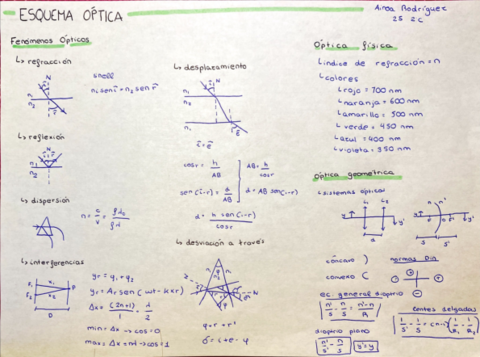 ESQUEMA ÓPTICA
Ainoa Rodríguez
25 2C
Fenómenos Ópticos
↳ refracción
snell
n₁ sen î = n₂ sen r̂
n₁
n₂
↳ reflexión
n₁
n₂
↳ dispersión
n = c/v =
↳ interferencias
D
yr = y₁ + y₂
yr = Ar sen (wt - kxr)
Δx = (2n+1)/1 · λ/2
min = Δx → cos = 0
max = Δx = nλ → cos = 1
↳ desplazamiento
n₁
n₂
n₁
cos r = h/AB
AB = h/cos r
sen (i-r) = d/AB
d = AB sen(i-r)
d = h sen(i-r)/cos r
↳ desviación a través
φ = r + r'
δ = i + e - φ
Óptica física
↳ índice de refracción = n
↳ colores
↳ rojo = 700 nm
↳ naranja = 600 nm
↳ amarillo = 500 nm
↳ verde = 450 nm
↳ azul = 400 nm
↳ violeta = 350 nm
Óptica geométrica
↳ sistemas ópticos
y
L₁
L₂
y'
s
y
n
n'
y'
s
s'
cóncavo )
convexo (
normas Din
ec. general dioptrio
n'/s' - n/s = n'-n/R
dioptrio plano
n'/s' = n/s
y' = y
lentes delgadas
1/s' - 1/s = (n-1)(1/R₁ - 1/R₂)